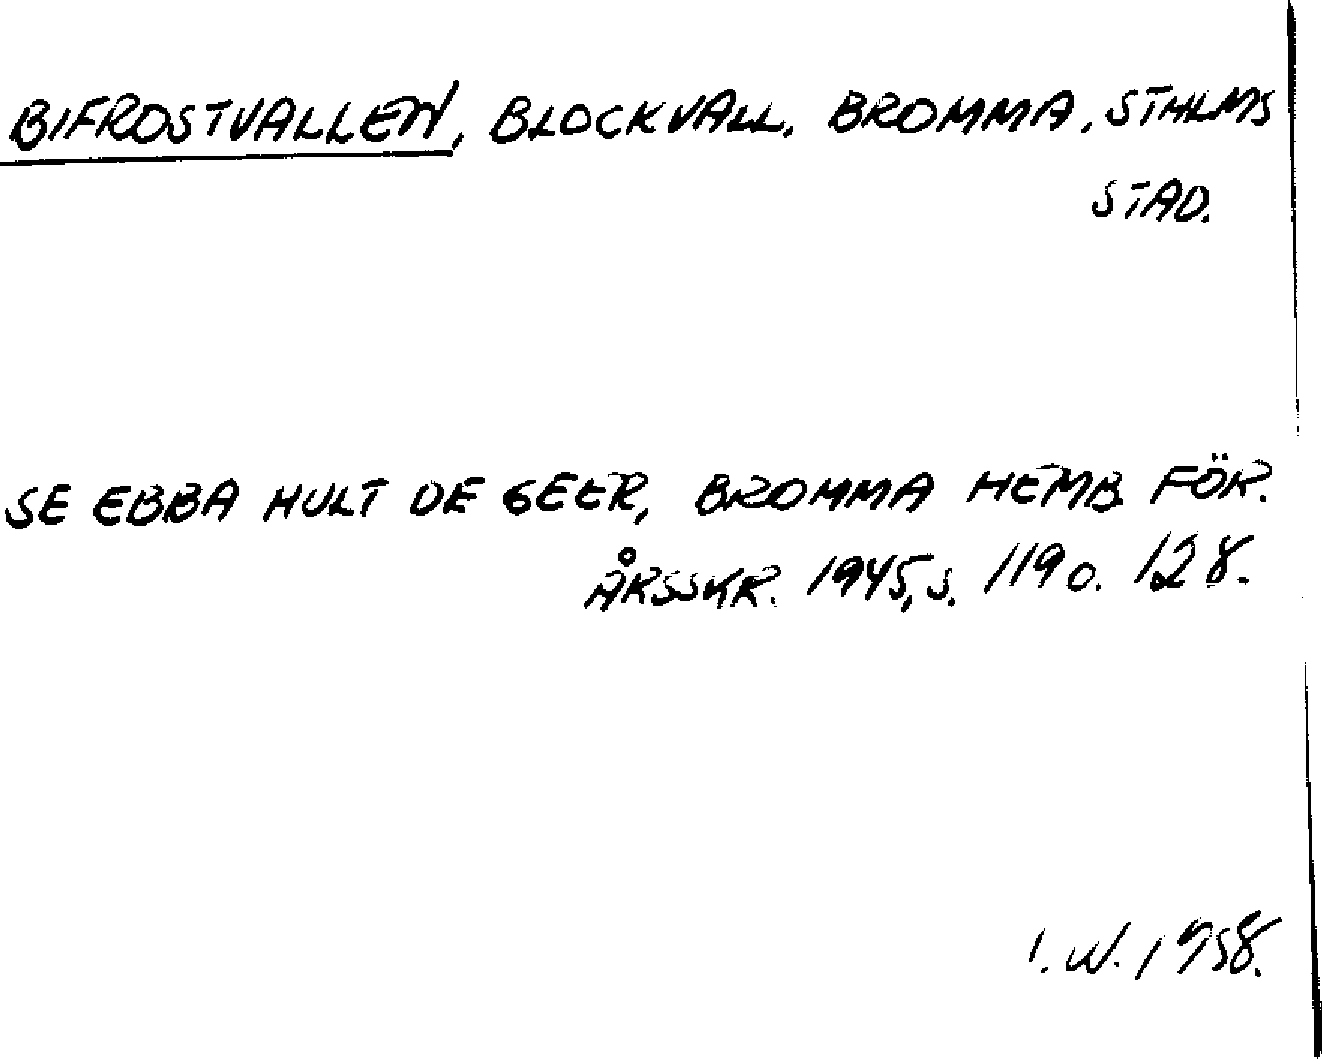 BIFROSTVALLEN, BLOCKVALL. BROMMA, STHLMS
STAD.
SE EBBA HULT DE GEER, BROMMA HEMB. FÖR.
ÅRSSKR. 1945, s. 119 o. 128.
I. W. 1958.